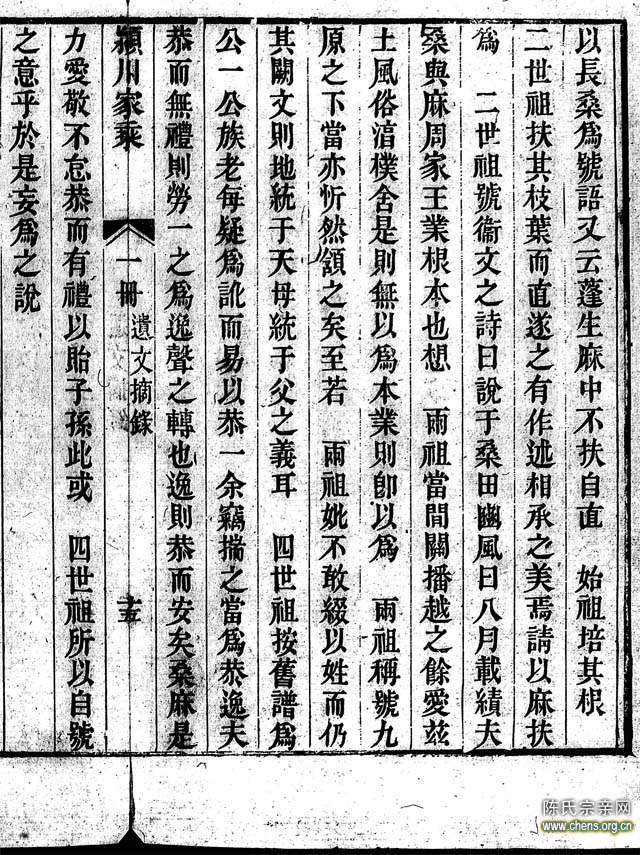 以長桑爲號語又云蓬生麻中不扶自直　始祖培其根
二世祖扶其枝葉而直遂之有作述相承之美焉請以麻扶
爲　二世祖號衞文之詩曰說于桑田豳風曰八月載績夫
桑與麻周家王業根本也想　兩祖當間關播越之餘愛茲
土風俗湻樸舍是則無以爲本業則卽以爲　兩祖稱號九
原之下當亦忻然頷之矣至若　兩祖妣不敢綴以姓而仍
其闕文則地統于天母統于父之義耳　四世祖按舊譜爲
公一公族老每疑爲訛而易以恭一余竊揣之當爲恭逸夫
恭而無禮則勞一之爲逸聲之轉也逸則恭而安矣桑麻是
潁川家乘　一冊　遺文摘錄　十五
力愛敬不怠恭而有禮以貽子孫此或　四世祖所以自號
之意乎於是妄爲之說
陈氏宗亲网
www.chens.org.cn